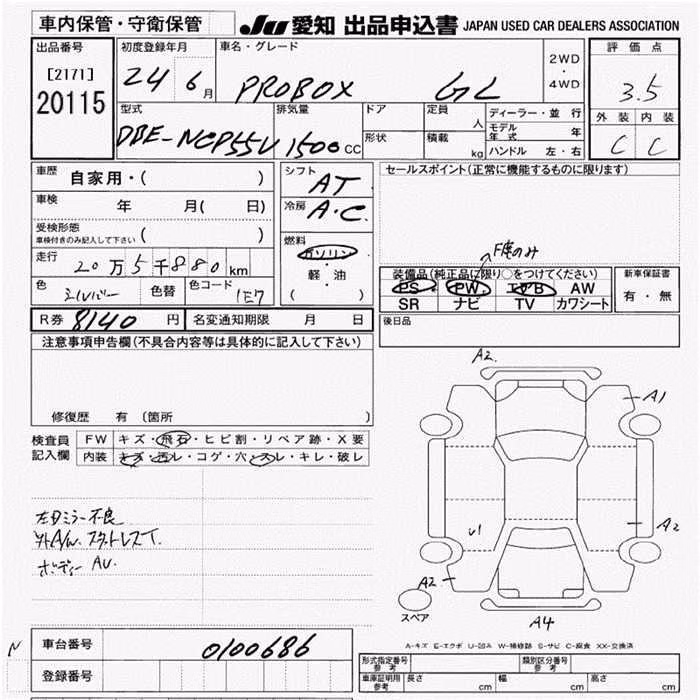 車内保管・守衛保管
JU 愛知 出品申込書 JAPAN USED CAR DEALERS ASSOCIATION
出品番号
[2171]
20115
初度登録年月
24 6月
車名・グレード
PROBOX GL
2WD
・
4WD
評価点
3.5
外装 内装
C C
型式
DBE-NCP55V
排気量
1500cc
ドア
形状
定員
人
積載
kg
ディーラー・並行
モデル年式 年
ハンドル 左・右
車歴 自家用・( )
車検 年 月( 日)
受検形態
車検付きのみ記入して下さい ( )
走行 20万5千880km
色 シルバー 色替 色コード 1E7
シフト
AT
冷房
A・C
燃料
ガソリン
・
軽・油
( )
セールスポイント(正常に機能するものに限ります)
F席のみ
装備品(純正品に限り○をつけてください)
PS PW エアB AW
SR ナビ TV カワシート
新車保証書
有・無
R券 8140 円 名変通知期限 月 日
後日品
注意事項申告欄(不具合内容等は具体的に記入して下さい)
修復歴 有 (箇所 )
検査員
記入欄
FW キズ・飛石・ヒビ割・リペア跡・X要
内装 キズ・汚レ・コゲ・穴・スレ・キレ・破レ
左Dミラー不良
ボディー AU.
A2.
A1
A2
U1
A2
A4
スペア
A-キズ E-エクボ U-凹み W-補修跡 S-サビ C-腐食 XX-交換済
N
車台番号 0100686
登録番号
形式指定番号
参考
類別区分番号
参考
車庫証明用
参考
長さ cm 幅 cm 高さ cm